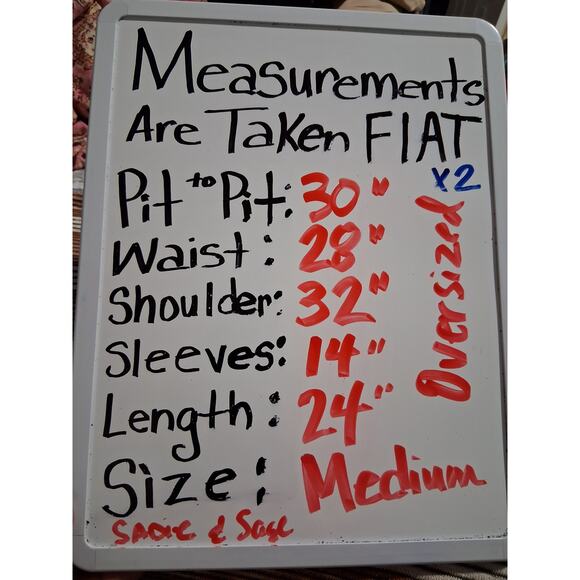 Measurements
Are Taken FlAT
x2
Pit to Pit: 30"
Waist: 28"
Shoulder: 32"
Sleeves: 14"
Length: 24"
Size: Medium
Oversized
& Sage